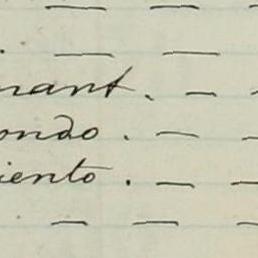 — — —
. — —
nant. — —
ondo. — —
iento. — —
— — —